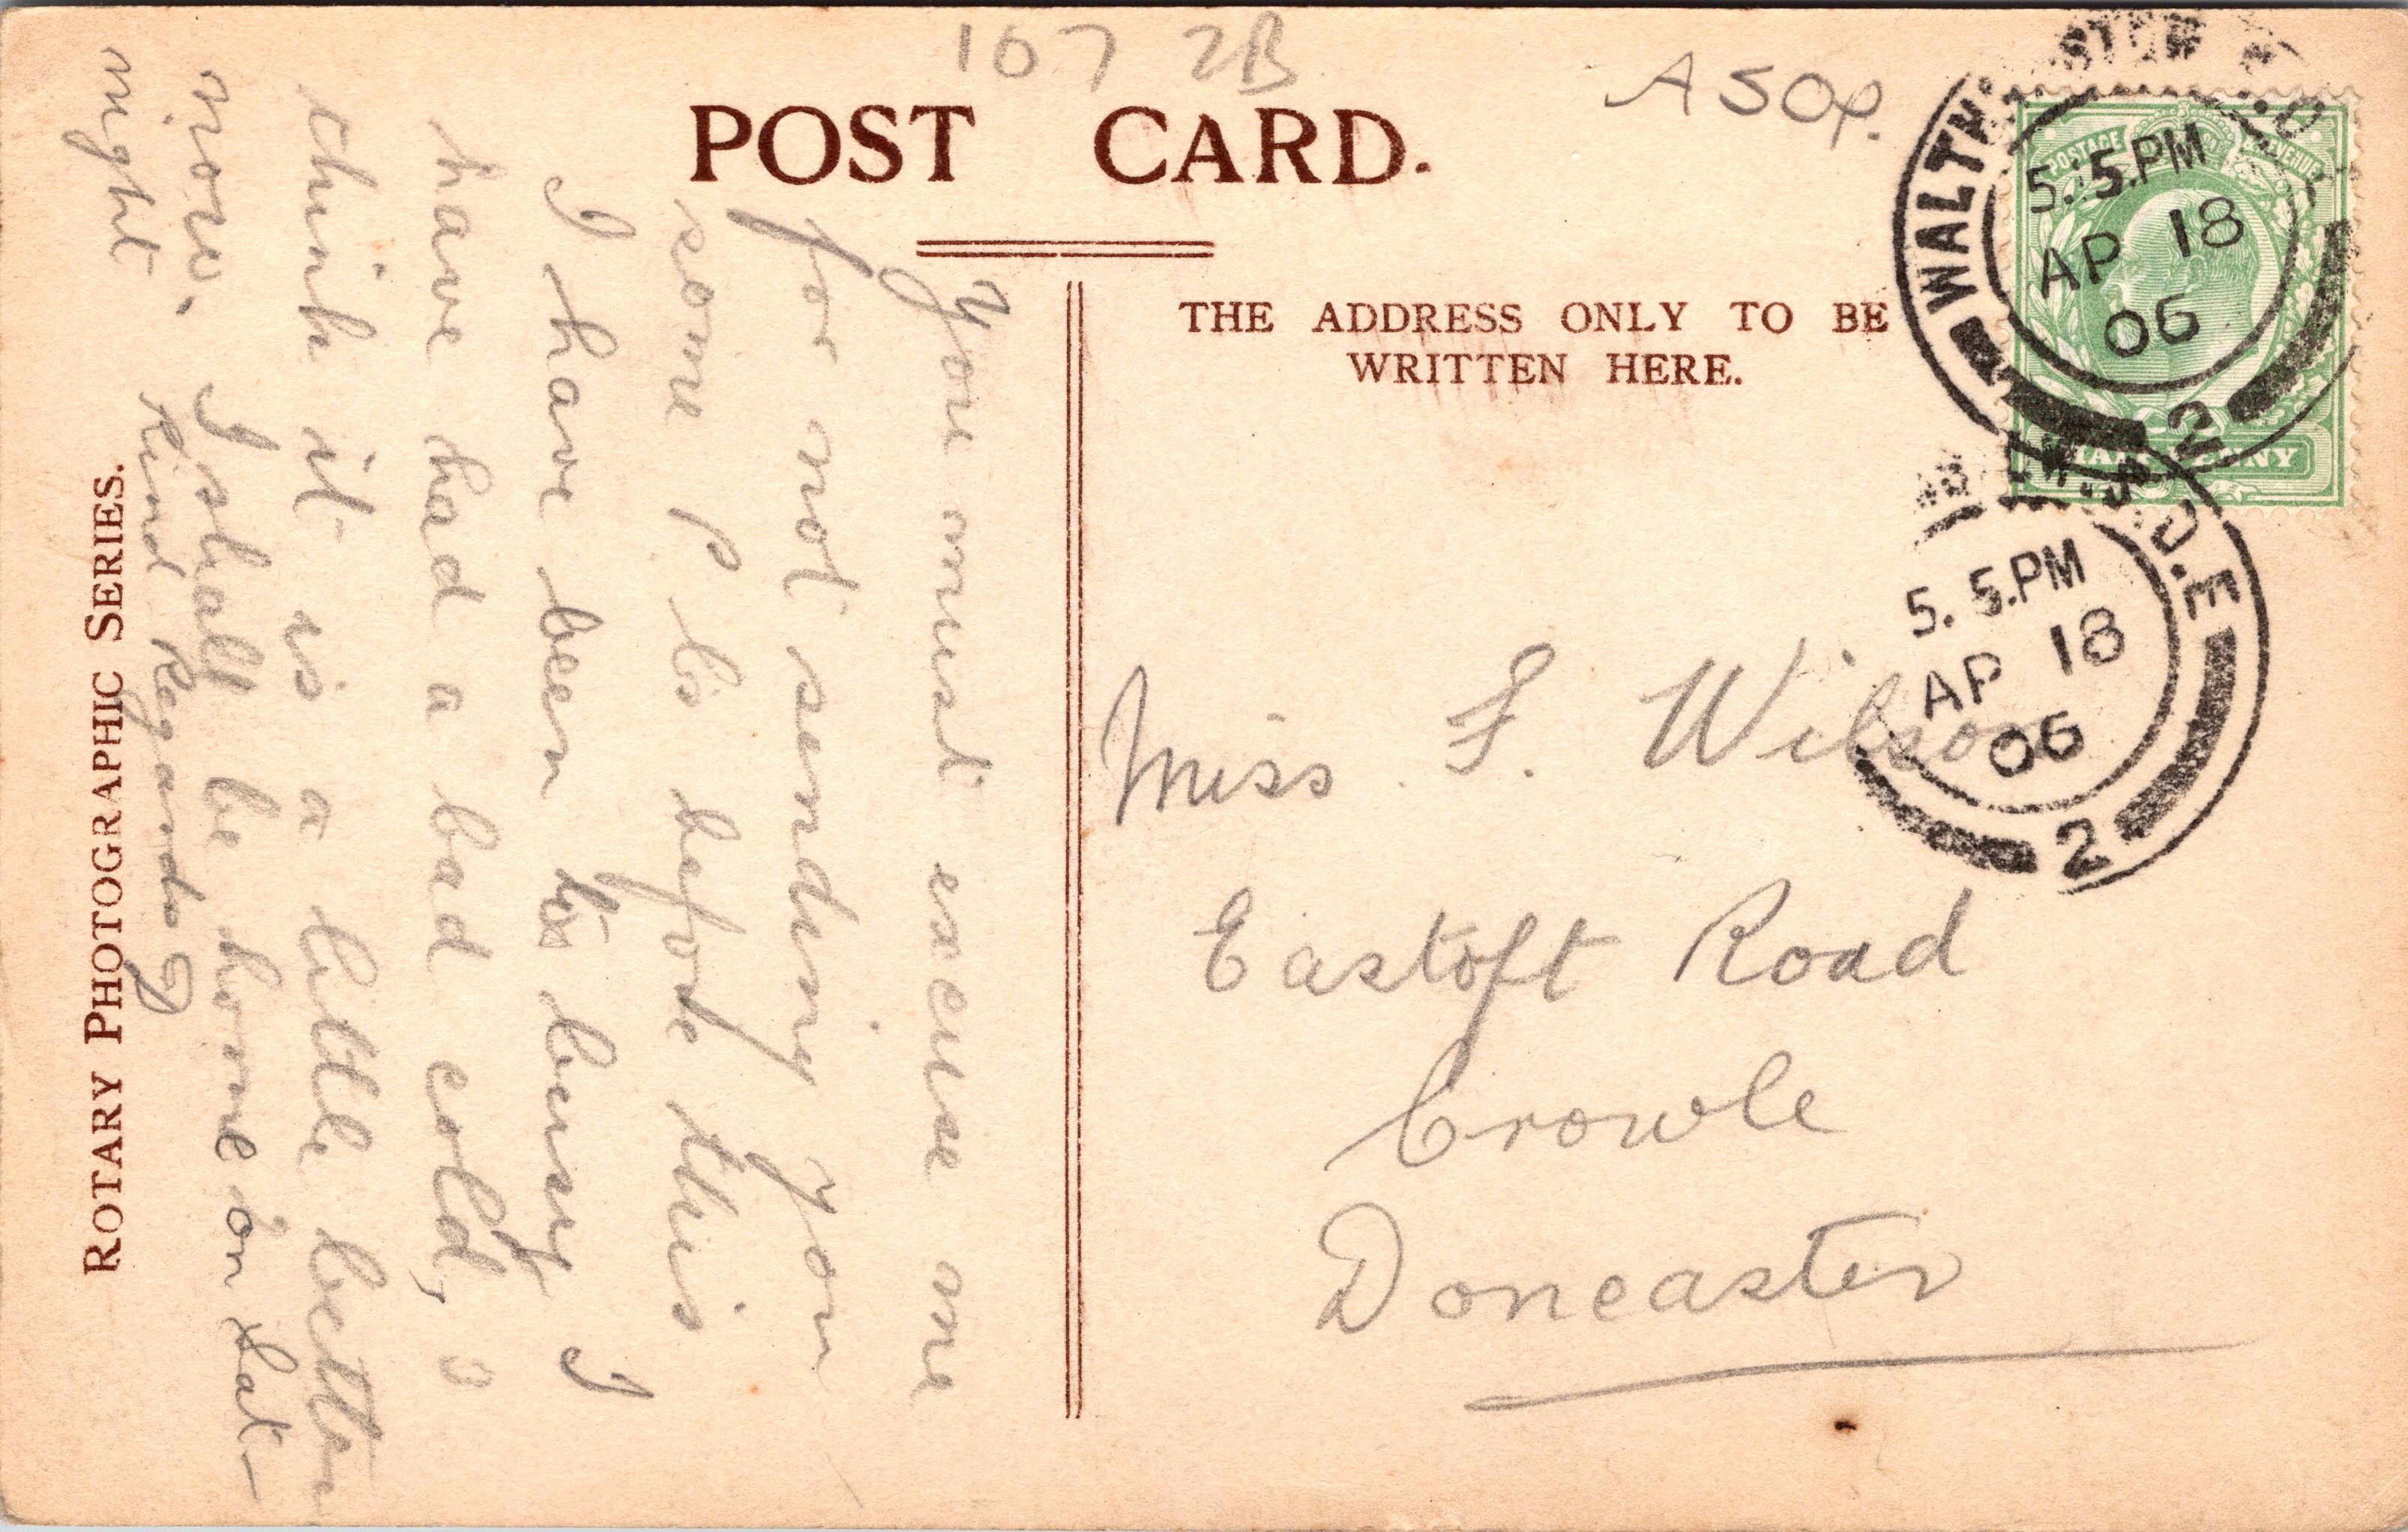 107 2B
A 50p.
POST CARD.
THE ADDRESS ONLY TO BE
WRITTEN HERE.
WALTH STOW
5.5.PM
AP 18
06
2
POSTAGE & REVENUE
HALFPENNY
S.O. D.E
5.5.PM
AP 18
06
2
Miss F. Wilson
Eastoft Road
Crowle
Doncaster
You must excuse me
for not sending you
some P Cs before this
I have been busy I
have had a bad cold,
think it is a little better
now. I shall be home on Sat-
night
Kind Regards
ROTARY PHOTOGRAPHIC SERIES.